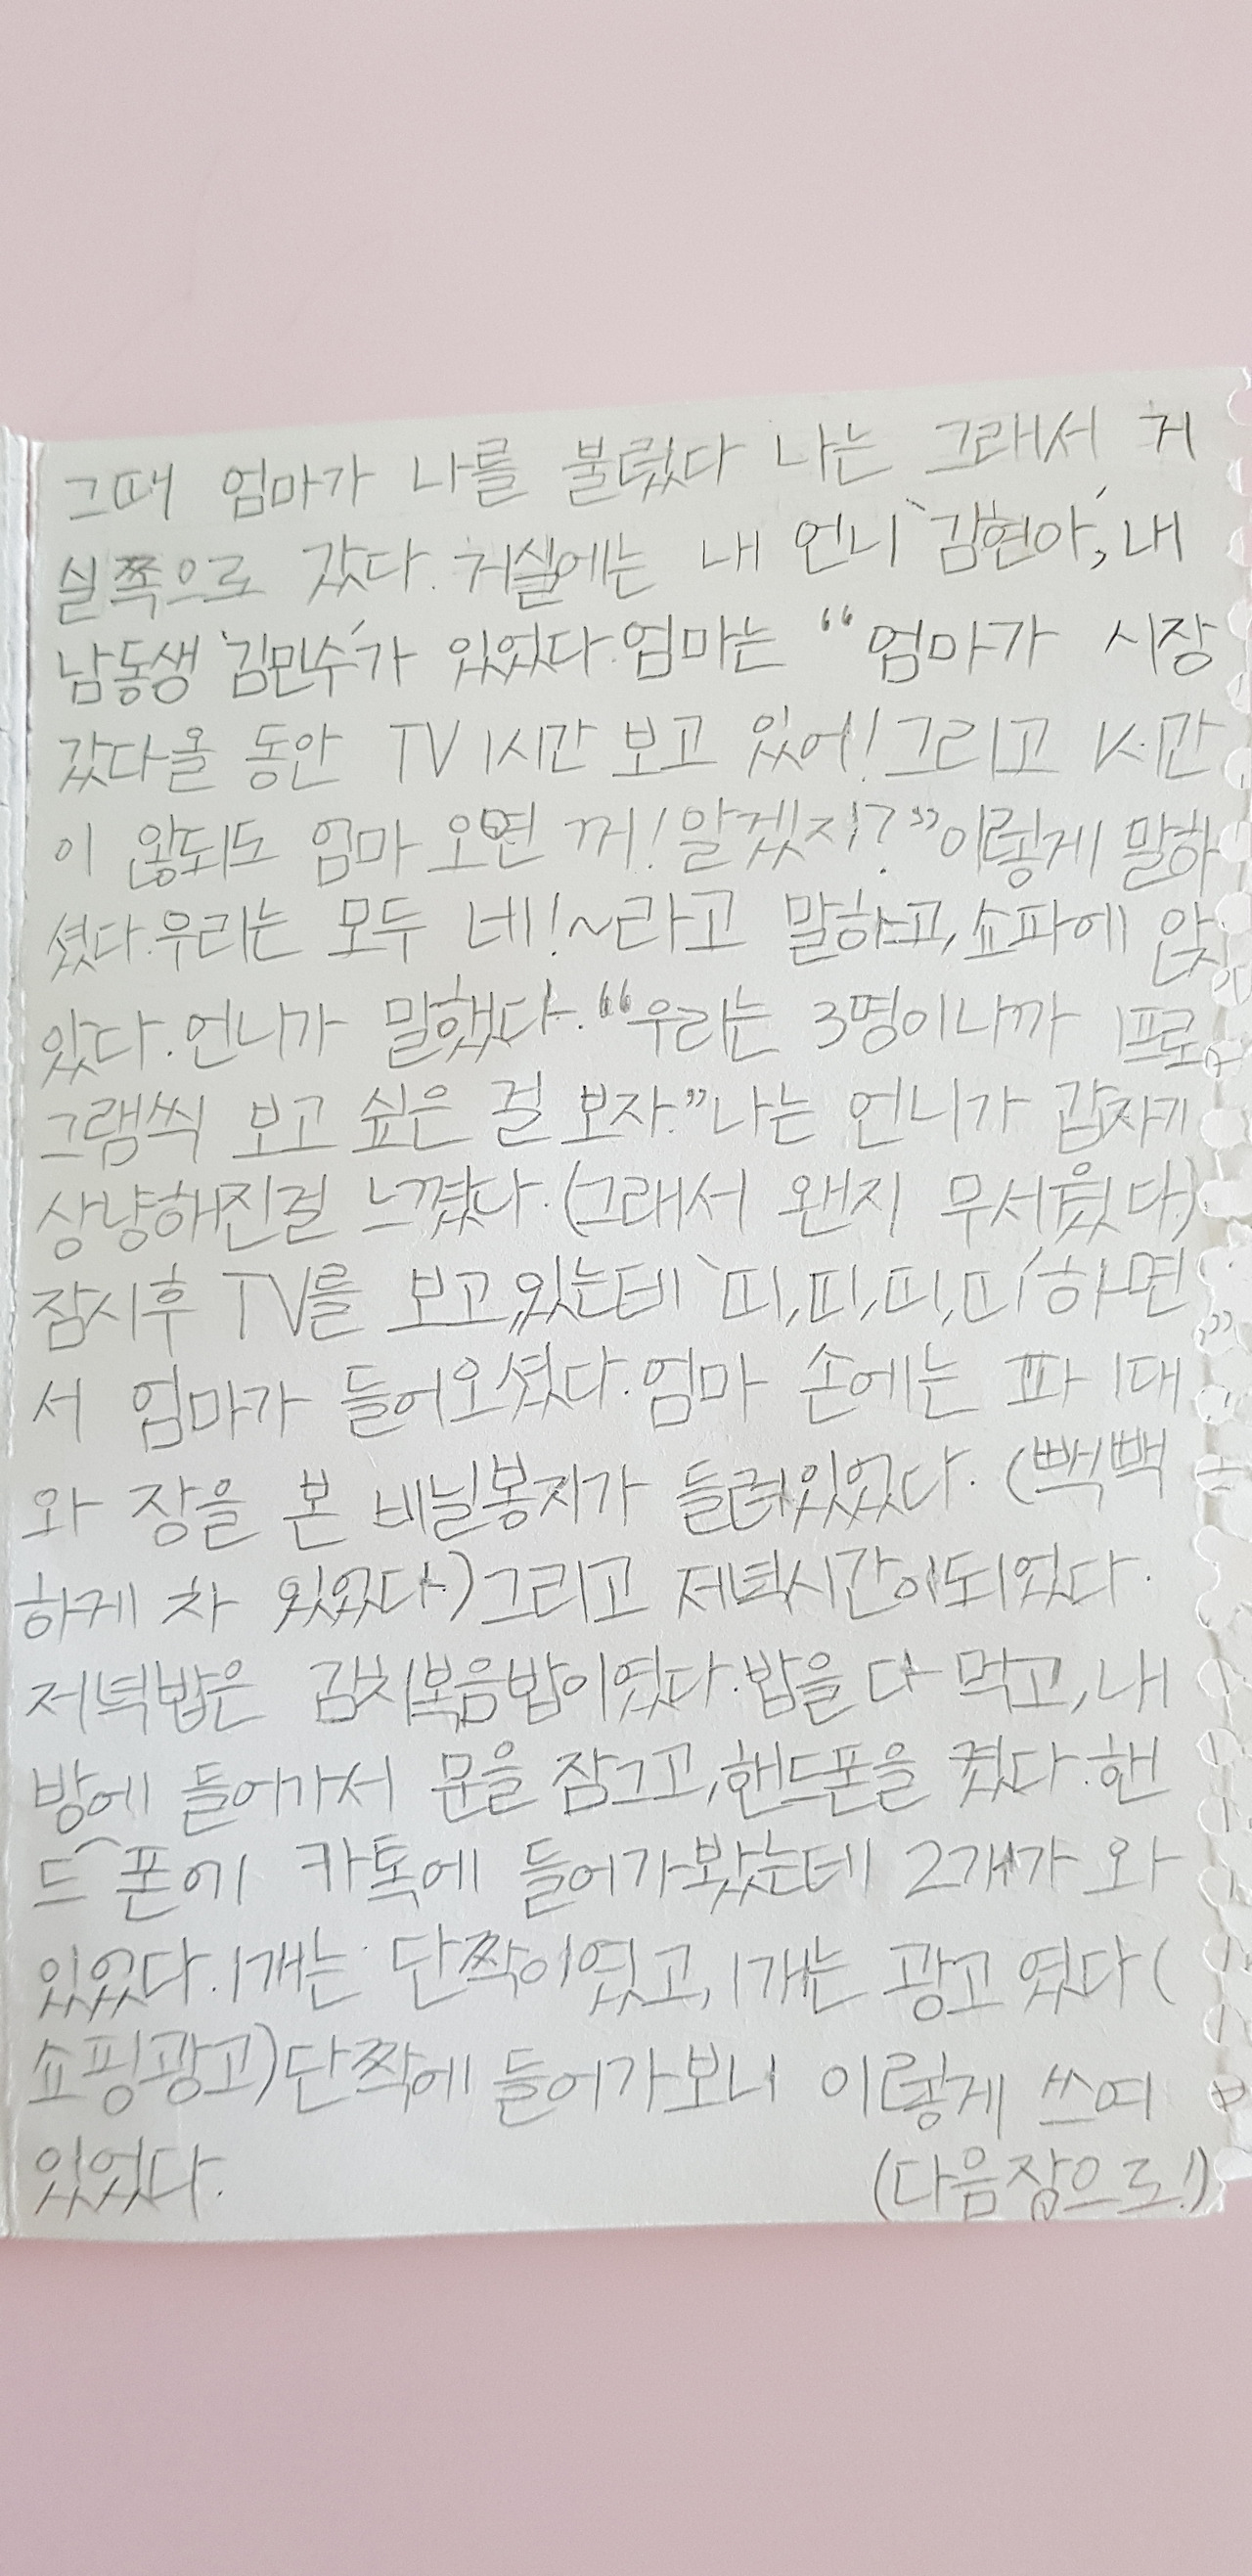 그때 엄마가 나를 불렀다 나는 그래서 거
실쪽으로 갔다. 거실에는 내 언니 '김현아', 내
남동생 '김민수'가 있었다. 엄마는 “엄마가 시장
갔다올 동안 TV 1시간 보고 있어! 그리고 1시간
이 않되도 엄마 오면 꺼! 알겠지?”이렇게 말하
셨다. 우리는 모두 네!~라고 말하고, 쇼파에 앉
았다. 언니가 말했다. “우리는 3명이니까 1프로
그램씩 보고 싶은 걸 보자.”나는 언니가 갑자기
상냥해진걸 느꼈다. (그래서 왠지 무서웠다.)
잠시후 TV를 보고있는데 '띠,띠,띠,띠'하면
서 엄마가 들어오셨다. 엄마 손에는 파 1대
와 장을 본 비닐봉지가 들려있었다. (빽빽
하게 차 있었다.) 그리고 저녁시간이되었다.
저녁밥은 김치볶음밥이였다. 밥을 다 먹고, 내
방에 들어가서 문을 잠그고, 핸드폰을 켰다. 핸
드폰에 카톡에 들어가봤는데 2개가 와
있었다. 1개는 단짝이였고, 1개는 광고 였다 (
쇼핑광고) 단짝에 들어가보니 이렇게 쓰여
있었다.
(다음장으로!)